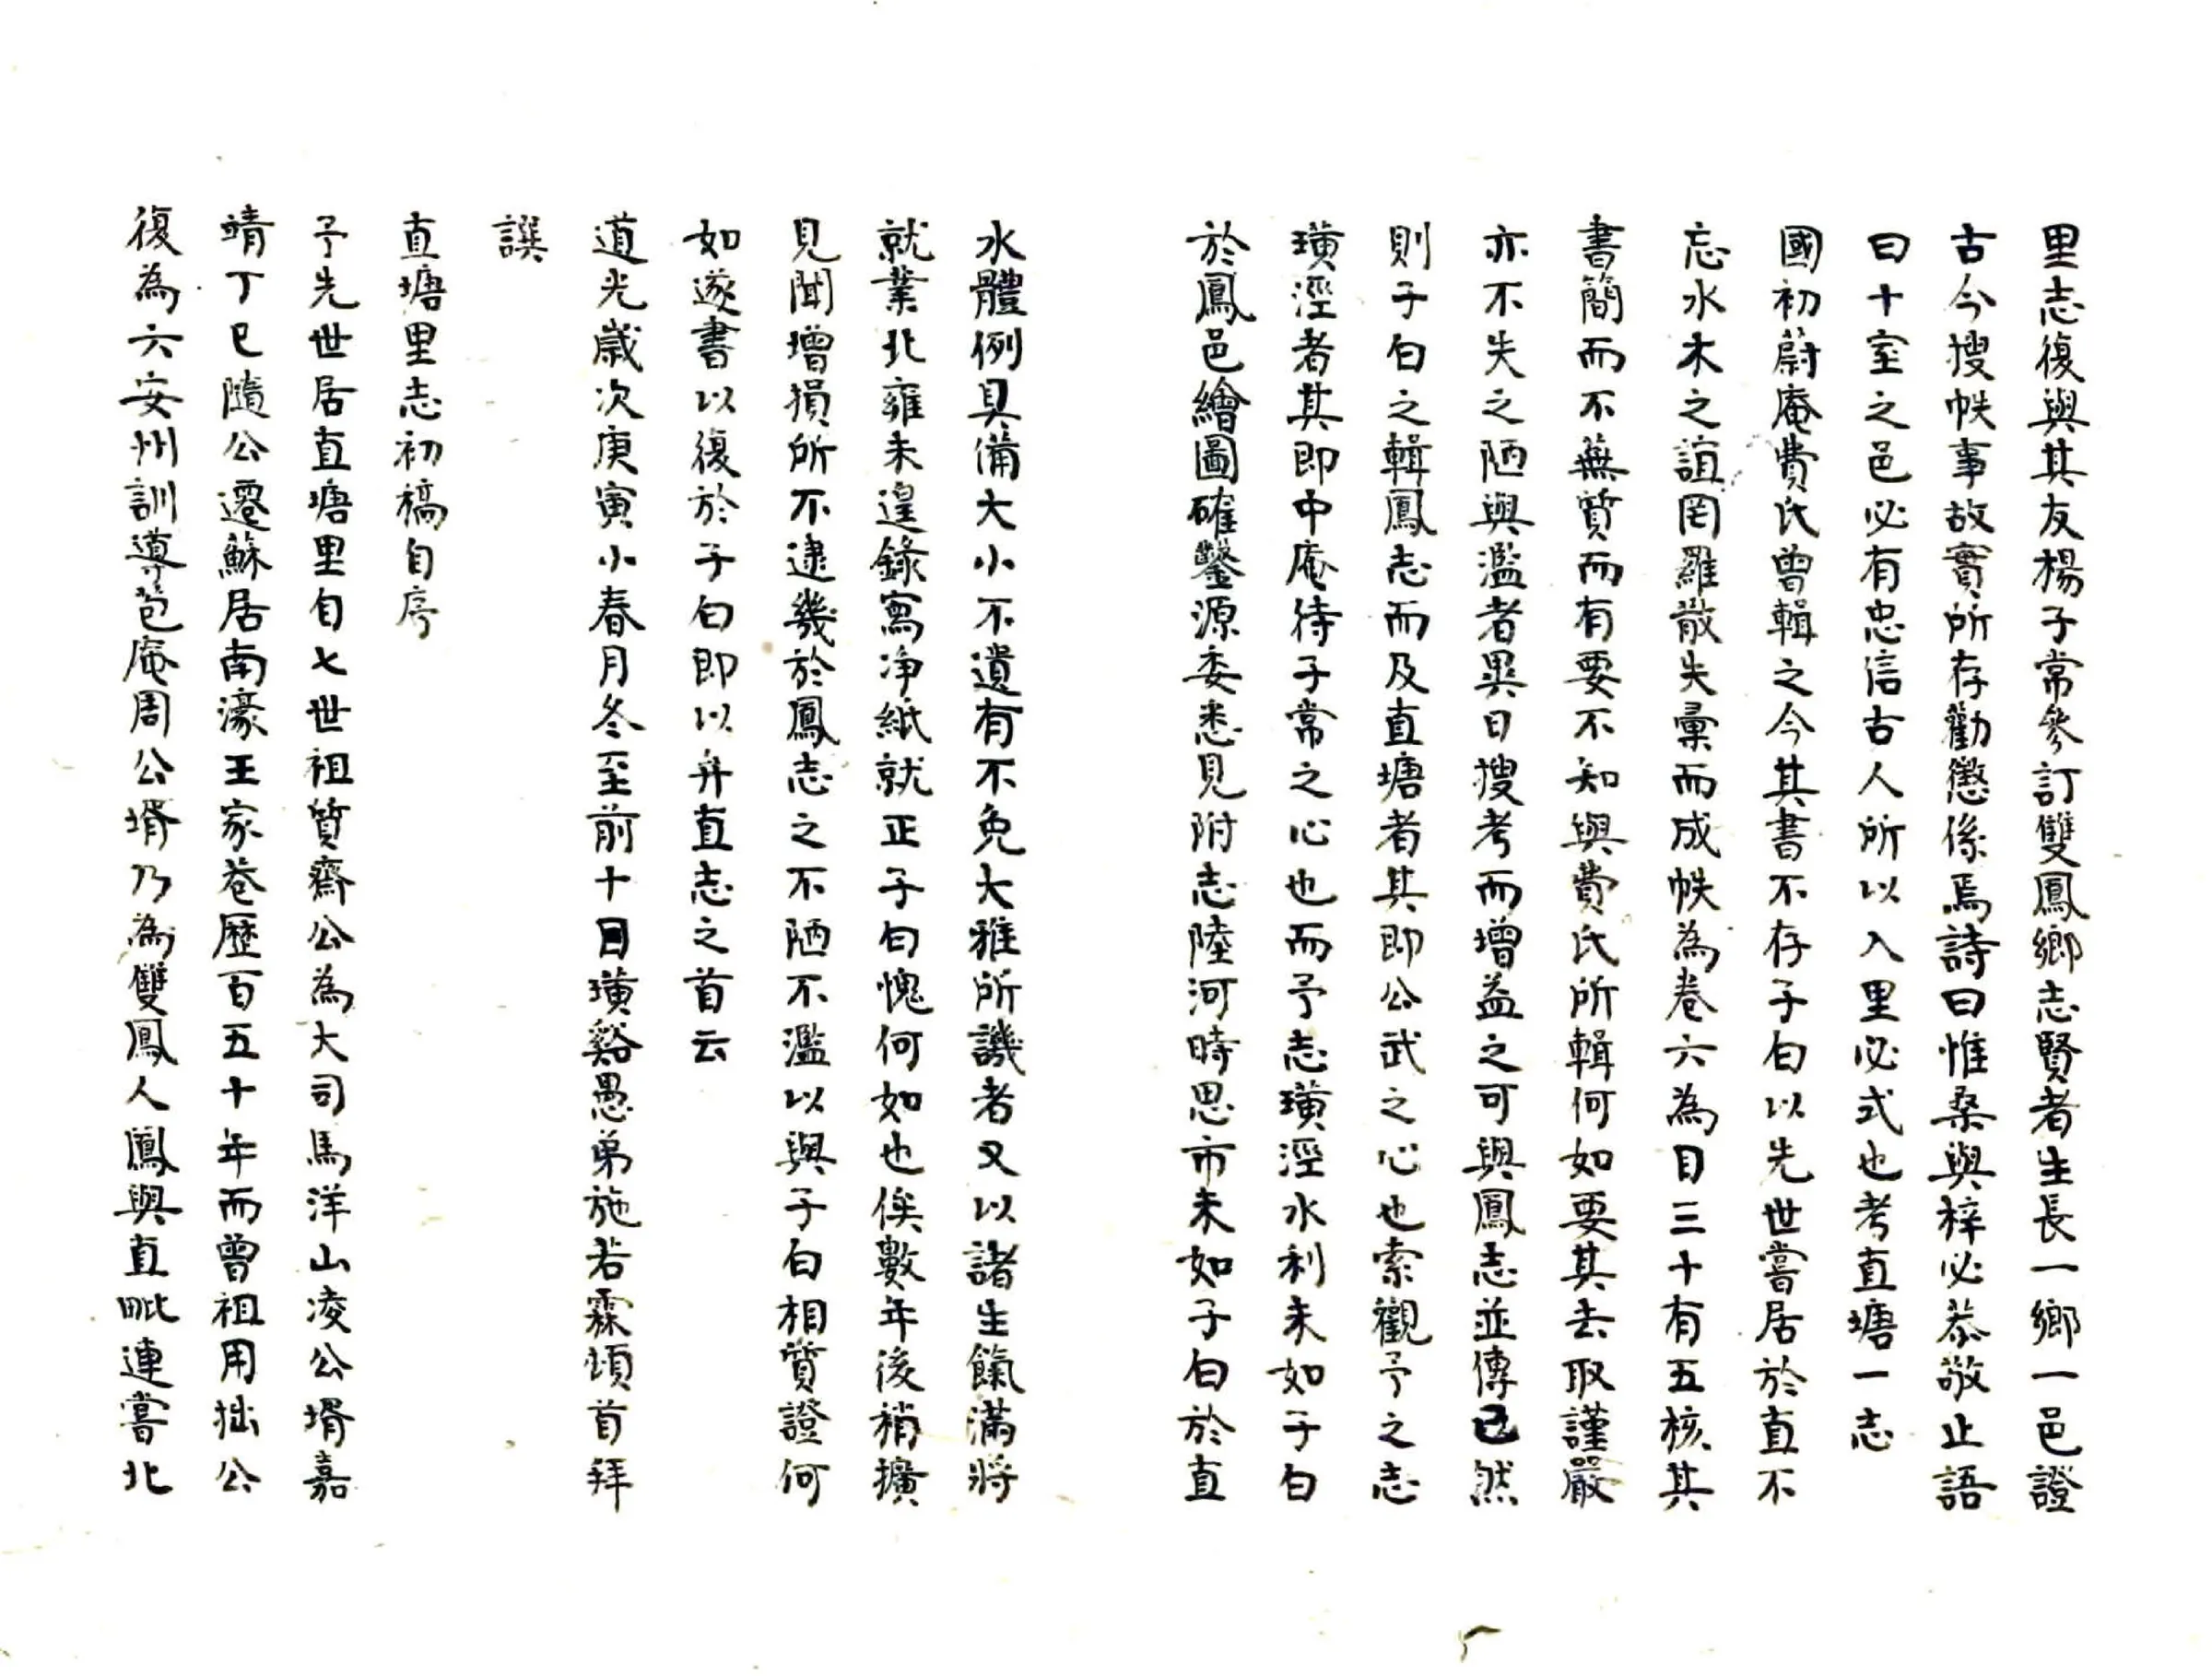 里志復與其友楊子常參訂雙鳳鄉志賢者生長一鄉一邑證
古今搜帙事故實所存勸懲係焉詩曰惟桑與梓必恭敬止語
曰十室之邑必有忠信古人所以入里必式也考直塘一志
國初蔚庵費氏曾輯之今其書不存子白以先世嘗居於直不
忘水木之誼罔羅散失彙而成帙為卷六為目三十有五核其
書簡而不蕪質而有要不知與費氏所輯何如要其去取謹嚴
亦不失之陋與濫者異日搜考而增益之可與鳳志並傳已然
則子白之輯鳳志而及直塘者其即公武之心也索觀予之志
璜涇者其即中庵待子常之心也而予志璜涇水利未如子白
於鳳邑繪圖確鑿源委悉見附志陸河時思市未如子白於直
水體例具備大小不遺有不免大雅所譏者又以諸生餼滿將
就業北雍未遑錄寫净紙就正子白愧何如也俟數年後稍擴
見聞增損所不逮幾於鳳志之不陋不濫以與子白相質證何
如遂書以復於子白即以弁直志之首云
道光歲次庚寅小春月冬至前十日璜谿愚弟施若霖頓首拜
譔
直塘里志初稿自序
予先世居直塘里自七世祖質齋公為大司馬洋山凌公壻嘉
靖丁巳隨公遷蘇居南濠王家巷歷百五十年而曾祖用拙公
復為六安州訓導笆庵周公壻乃為雙鳳人鳳與直毗連嘗北